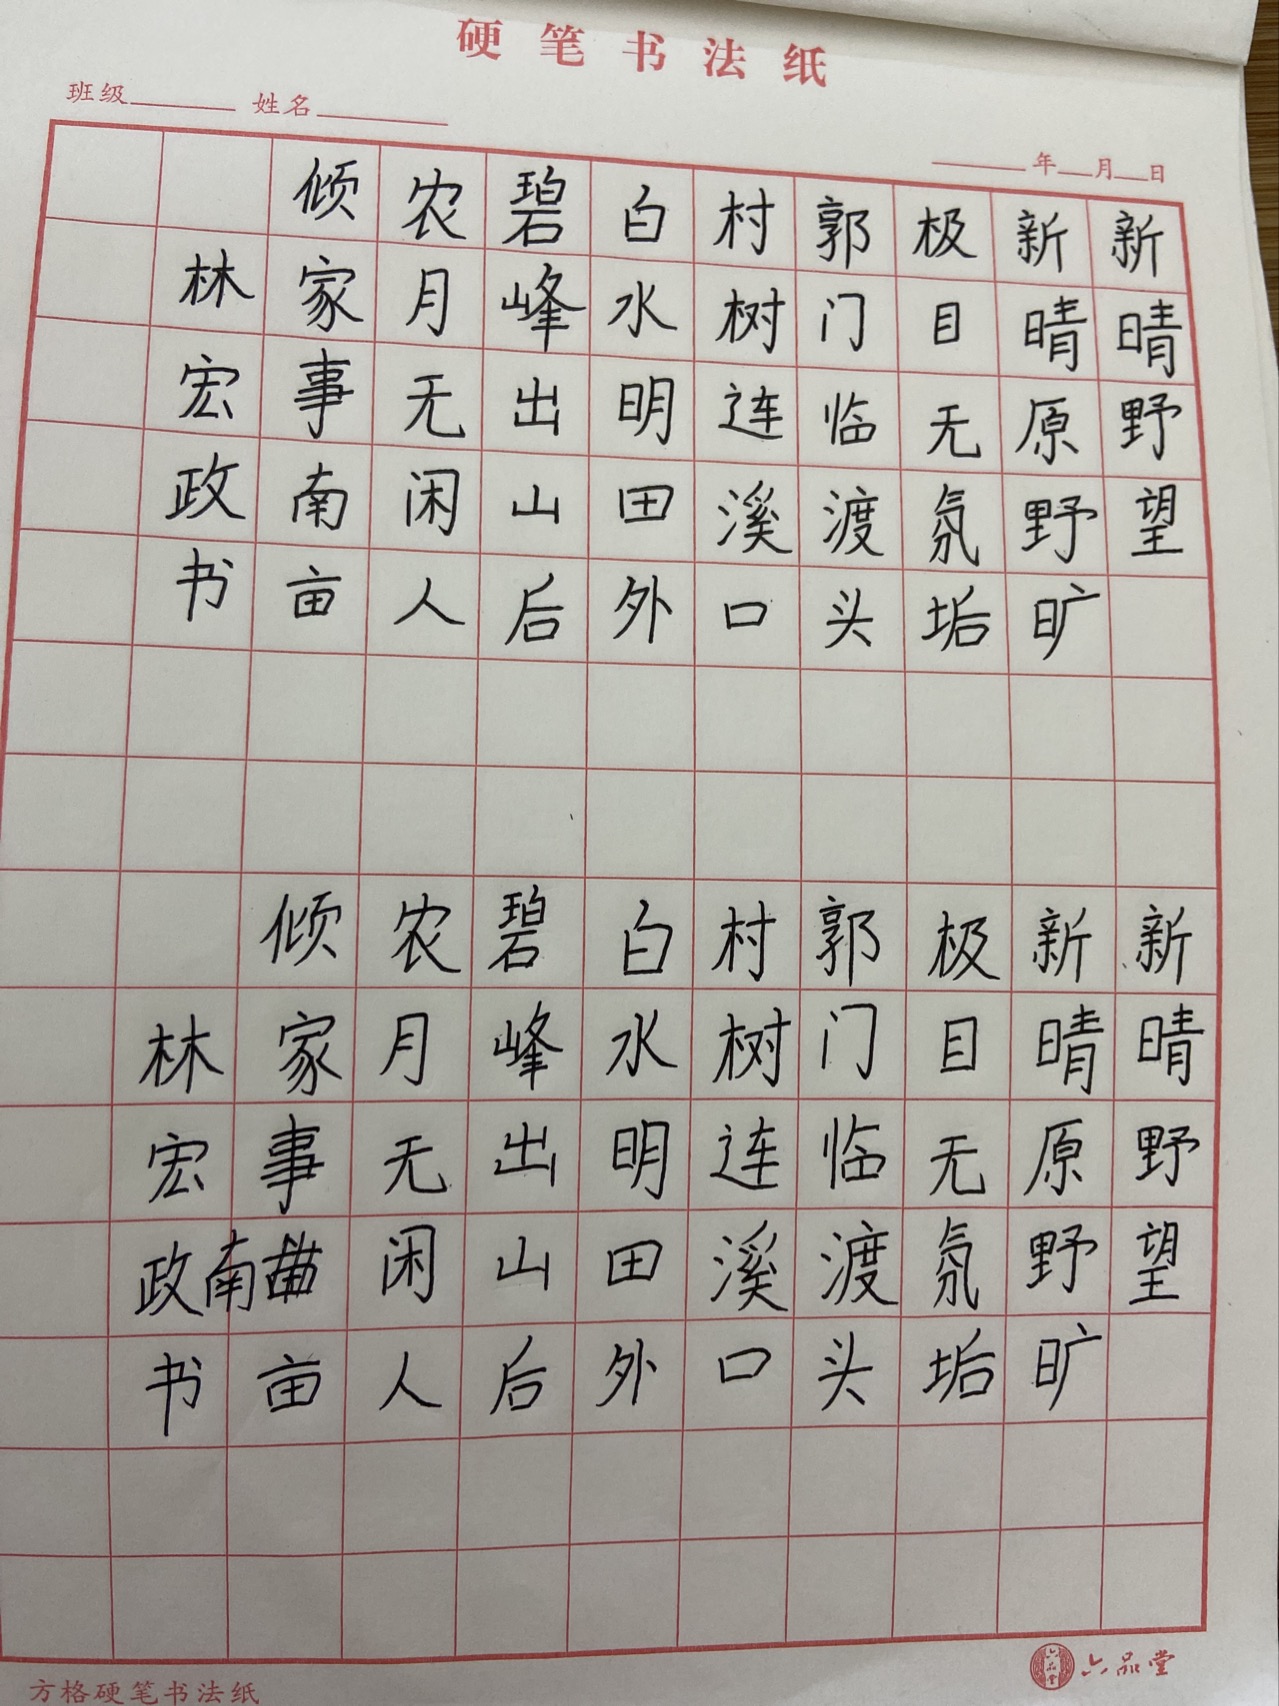 硬笔书法纸
班级 姓名
年 月 日
新晴野望
新晴原野旷
极目无氛垢
郭门临渡头
村树连溪口
白水明田外
碧峰出山后
农月无闲人
倾家事南亩
林宏政书
新晴野望
新晴原野旷
极目无氛垢
郭门临渡头
村树连溪口
白水明田外
碧峰出山后
农月无闲人
倾家事南亩
林宏政书
方格硬笔书法纸
六品堂
六品堂